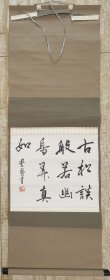 古松談
般若幽
鳥弄真
如